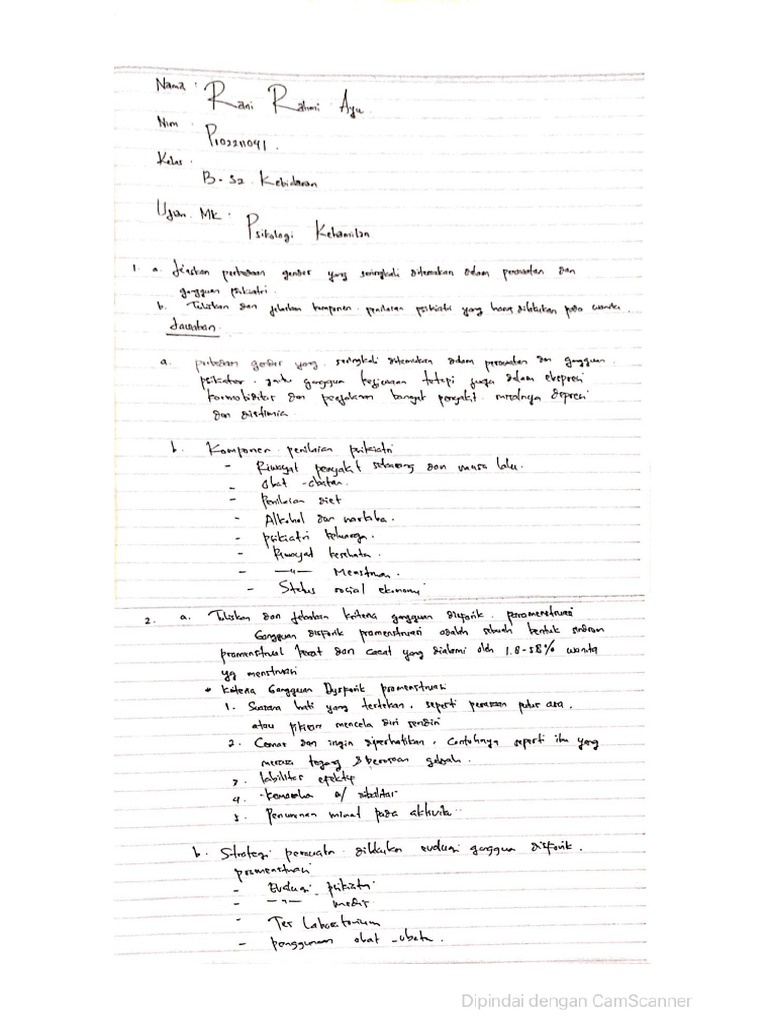 Nama : Rani Rahmi Ayu
Nim : P102211041.
Kelas : B-S2 Kebidanan
Ujian MK : Psikologi Kehamilan
1. a. Jelaskan perbedaan gender yang seringkali ditemukan dalam perawatan dan
gangguan psikiatri.
b. Tuliskan dan jelaskan komponen penilaian psikiatri yang harus dilakukan pada wanita.
Jawaban
a. perbedaan gender yang seringkali ditemukan dalam perawatan dan gangguan
psikiater yaitu gangguan kejiwaan tetapi juga dalam ekspresi
komorbiditas dan perjalanan banyak penyakit misalnya depresi
dan distimia
b. Komponen penilaian psikiatri
- Riwayat penyakit sekarang dan masa lalu.
- Obat-obatan.
- Penilaian diet
- Alkohol dan narkoba.
- psikiatri keluarga.
- Riwayat kesehatan
- —〃— Menstruasi.
- Status sosial ekonomi
2. a. Tuliskan dan jelaskan kriteria gangguan disforik pramenstruasi
Gangguan disforik pramenstruasi adalah sebuah bentuk sindrom
pramenstrual berat dan cacat yang dialami oleh 1.8-58% wanita
yg menstruasi
* Kriteria Gangguan Dysforik pramenstruasi
1. Suasana hati yang tertekan, seperti perasaan putus asa,
atau pikiran mencela diri sendiri
2. Cemas dan ingin diperhatikan, contohnya seperti ibu yang
merasa tegang & perasaan gelisah.
3. labilitas efektif
4. Kemarahan
5. Penurunan minat pada aktivitas
b. Strategi perawatan dilakukan evaluasi gangguan disforik
pramenstruasi
- Evaluasi psikiatri
- —〃— medis
- Tes Laboratorium
- penggunaan obat-obatan.
Dipindai dengan CamScanner